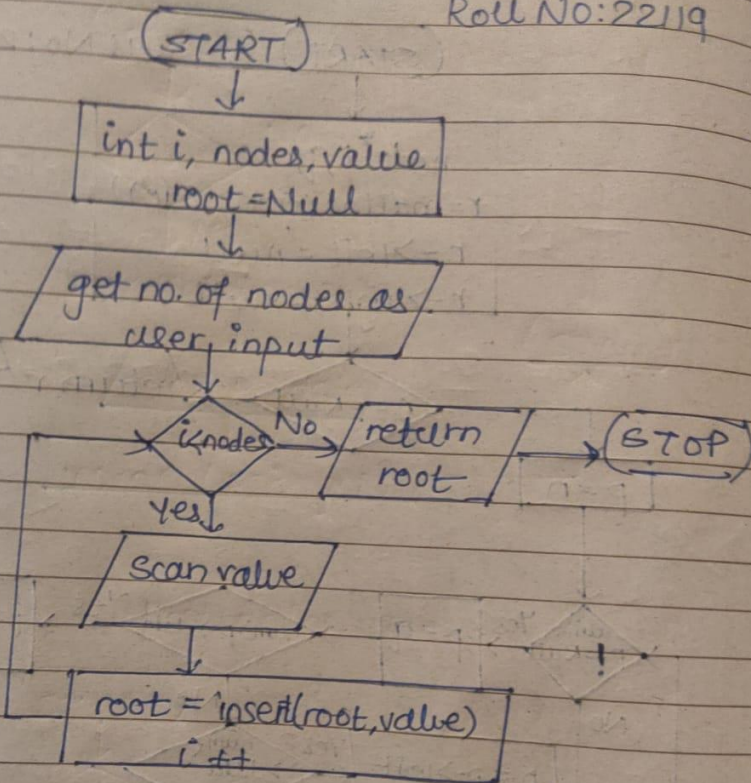 Roll NO:22119
START
int i, nodes, value
root=Null
get no. of nodes as
user input
i<nodes
No
return
root
STOP
yes
scan value
root = insert(root,value)
i++